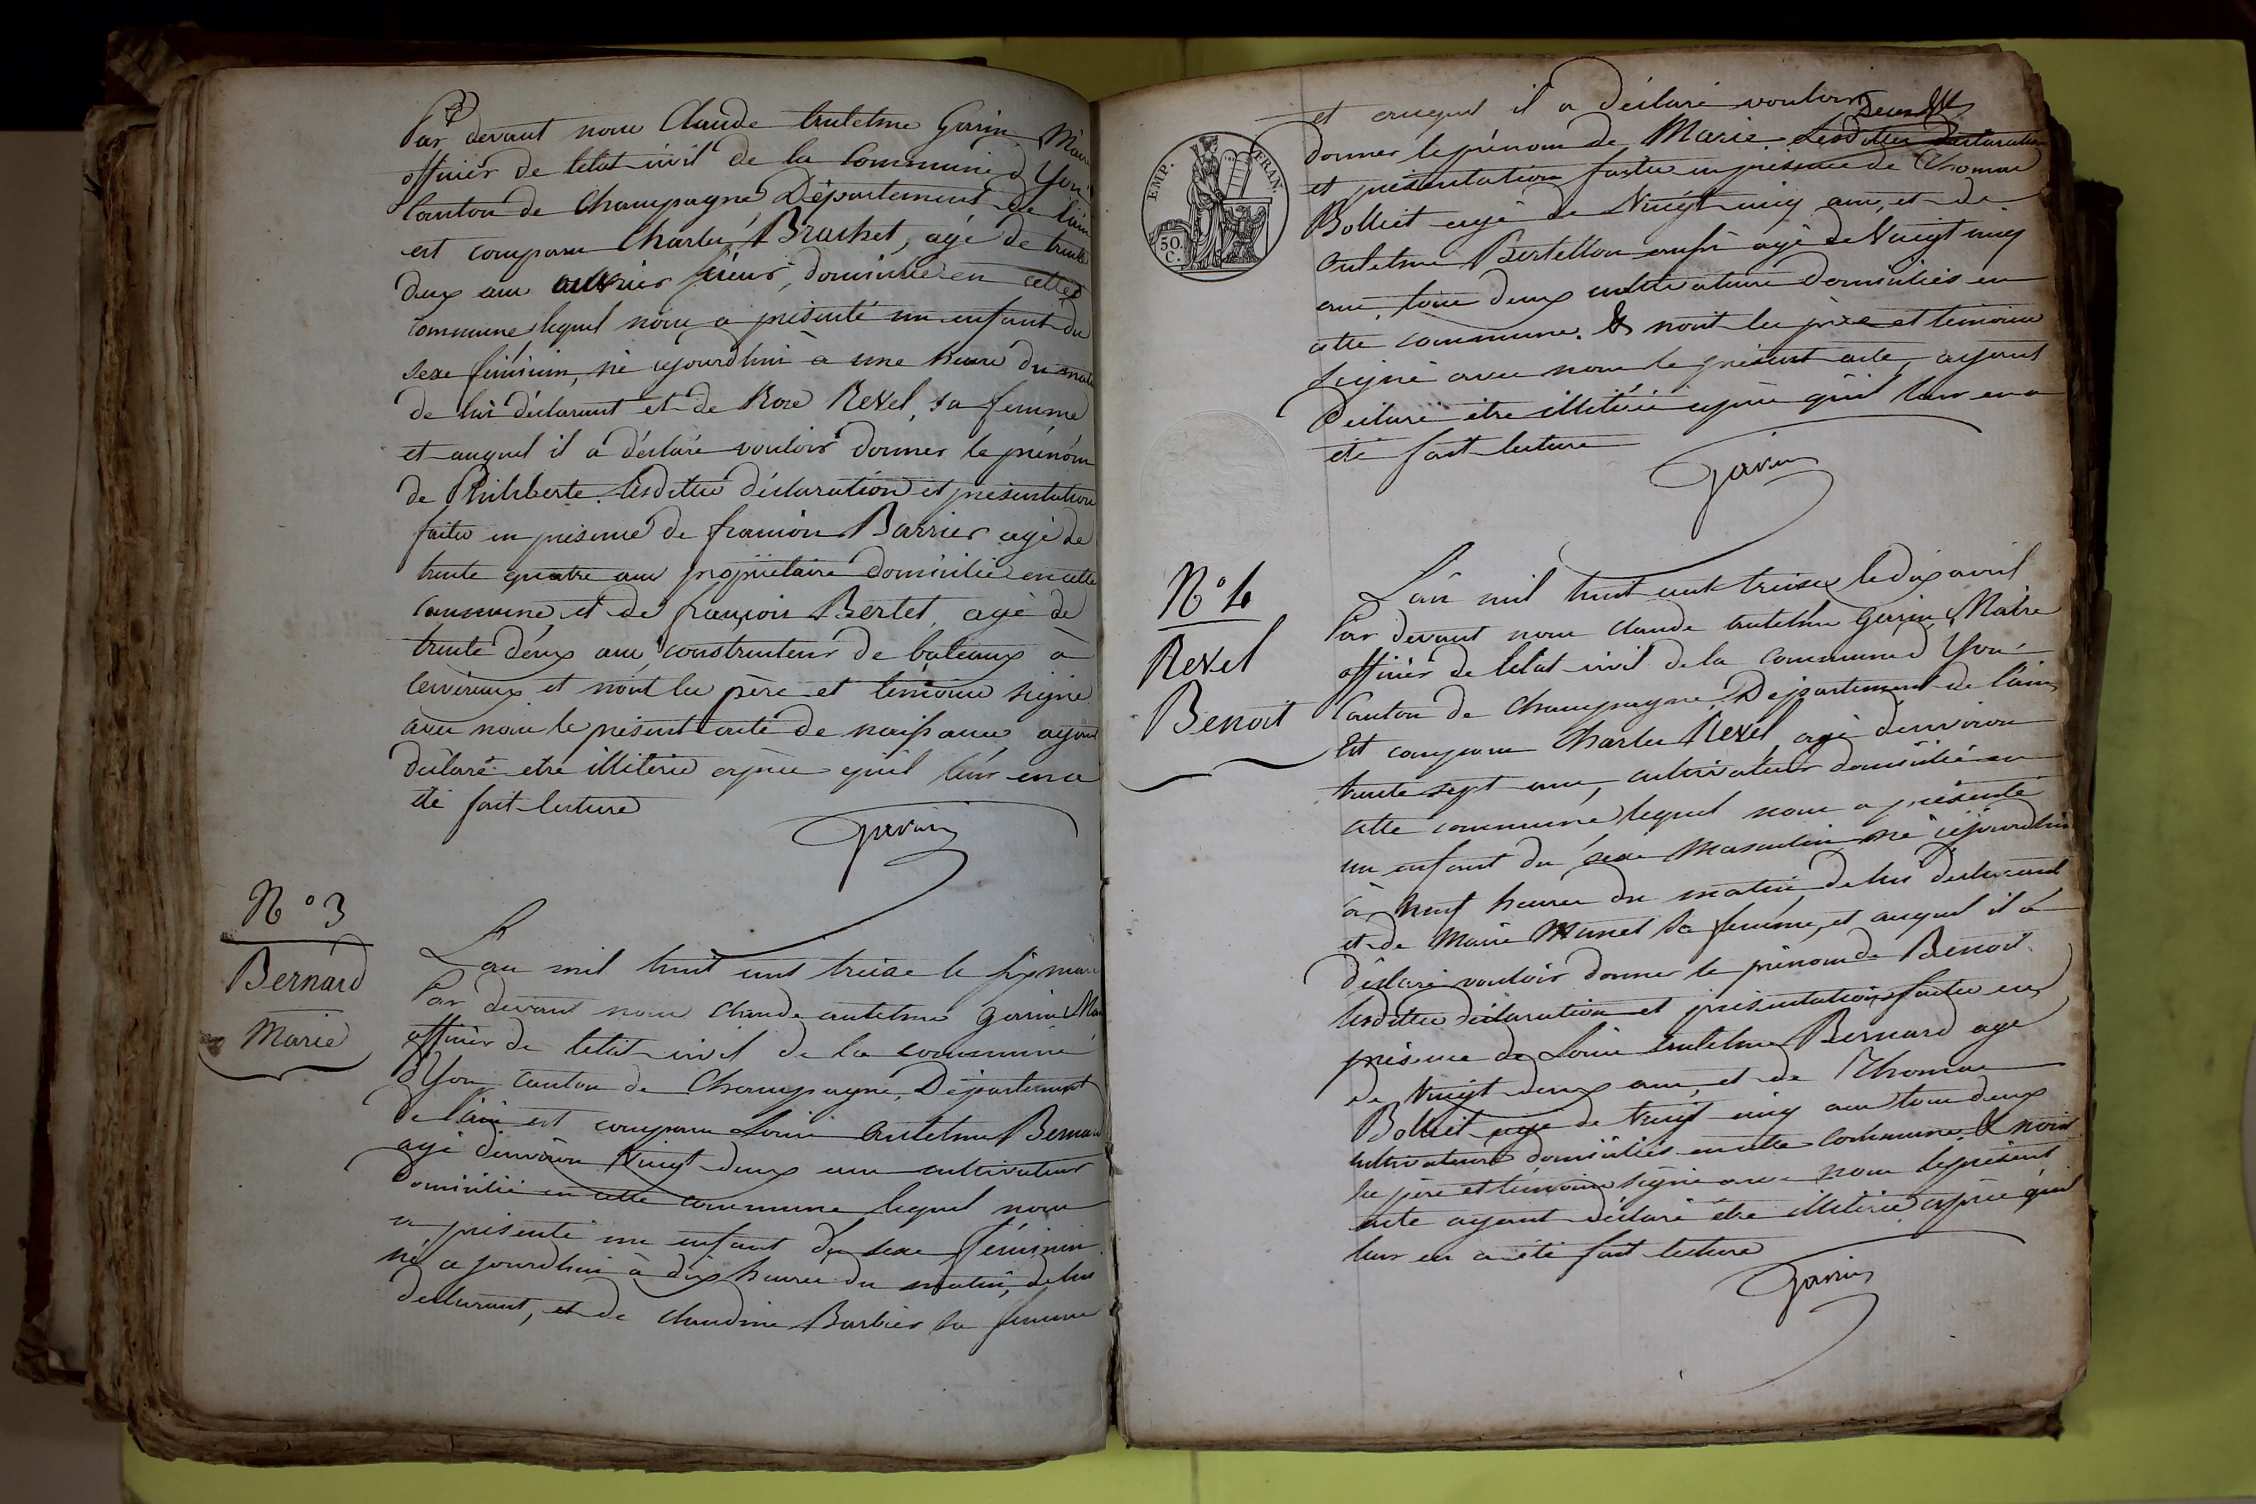 Par devant nous Claude Antelme Garin Mair
officier de letat civil de la Commune d Yon
Canton de Champagne Département de l'ain
est comparu Charles Brachet, agé de trente
deux ans ouvrier scieur, domicilié en cette
commune lequel nous a présenté un enfant du
sexe féminin, né cejourdhui à une heure du matin
de lui déclarant et de Rose Revel, sa femme
et auquel il a déclaré vouloir donner le prénom
de Philiberte. Lesdittes déclaration et présentation
faites en présence de françois Barrier agé de
trente quatre ans propriétaire domicilié en cette
commune, et de françois Bertet, agé de
trente deux ans, constructeur de bateaux à
et n'ont les père et temoins signé
avec nous le présent acte de naissance ayant
déclaré etre illiterés après qu'il leur en a
été fait lecture
Garin
N° 3
Bernard
Marie
L'an mil huit cent treize le six mars
Par devant nous Claude antelme Garin Mai
officier de letat civil de la commune
d'Yon canton de Champagne, Département
de l'ain est comparu Louis Antelme Bernard
agé d'environ vingt deux ans cultivateur
domicilié en cette commune lequel nous
a présenté un enfant du sexe féminin
né cejourdhui à dix heures du matin, de lui
déclarant, et de claudine Barbier sa femme
EMP. FRAN.
50.
C.
et auquel il a déclaré vouloir
donner le prénom de Marie. Lesdittes déclaration
et présentation faites en présence de Thomas
Bolliet agé de Vingt cinq ans, et de
Antelme Bertellon agé de Vingt cinq
ans, tous deux cultivateurs domiciliés en
cette commune. Et n'ont les père et témoins
signé avec nous le présent acte, ayant
déclaré être illitérés après qu'il leur en a
été fait lecture
Garin
N° 4
Revel
Benoit
L'an mil huit cent treize le dix avril
Par devant nous Claude Antelme Garin Maire
officier de letat civil de la commune d Yon
Canton de Champagne, Département de l'ain
Est comparu Charles Revel, agé denviron
trente sept ans, cultivateur domicilié en
cette commune lequel nous a présenté
un enfant du sexe Masculin né cejourdhui
à neuf heures du matin, de lui déclarant
et de Marie Munet sa femme, et auquel il a
déclaré vouloir donner le prénom de Benoit
lesdittes déclaration et présentation faites en
présence de Louis Antelme Bernard agé
de Vingt deux ans, et de Thomas
Bolliet agé de Vingt cinq ans tous deux
cultivateurs domiciliés en cette commune. Et n'ont
les père et témoins signé avec nous le présent
acte ayant déclaré être illitérés après qu'il
leur en a été fait lecture
Garin